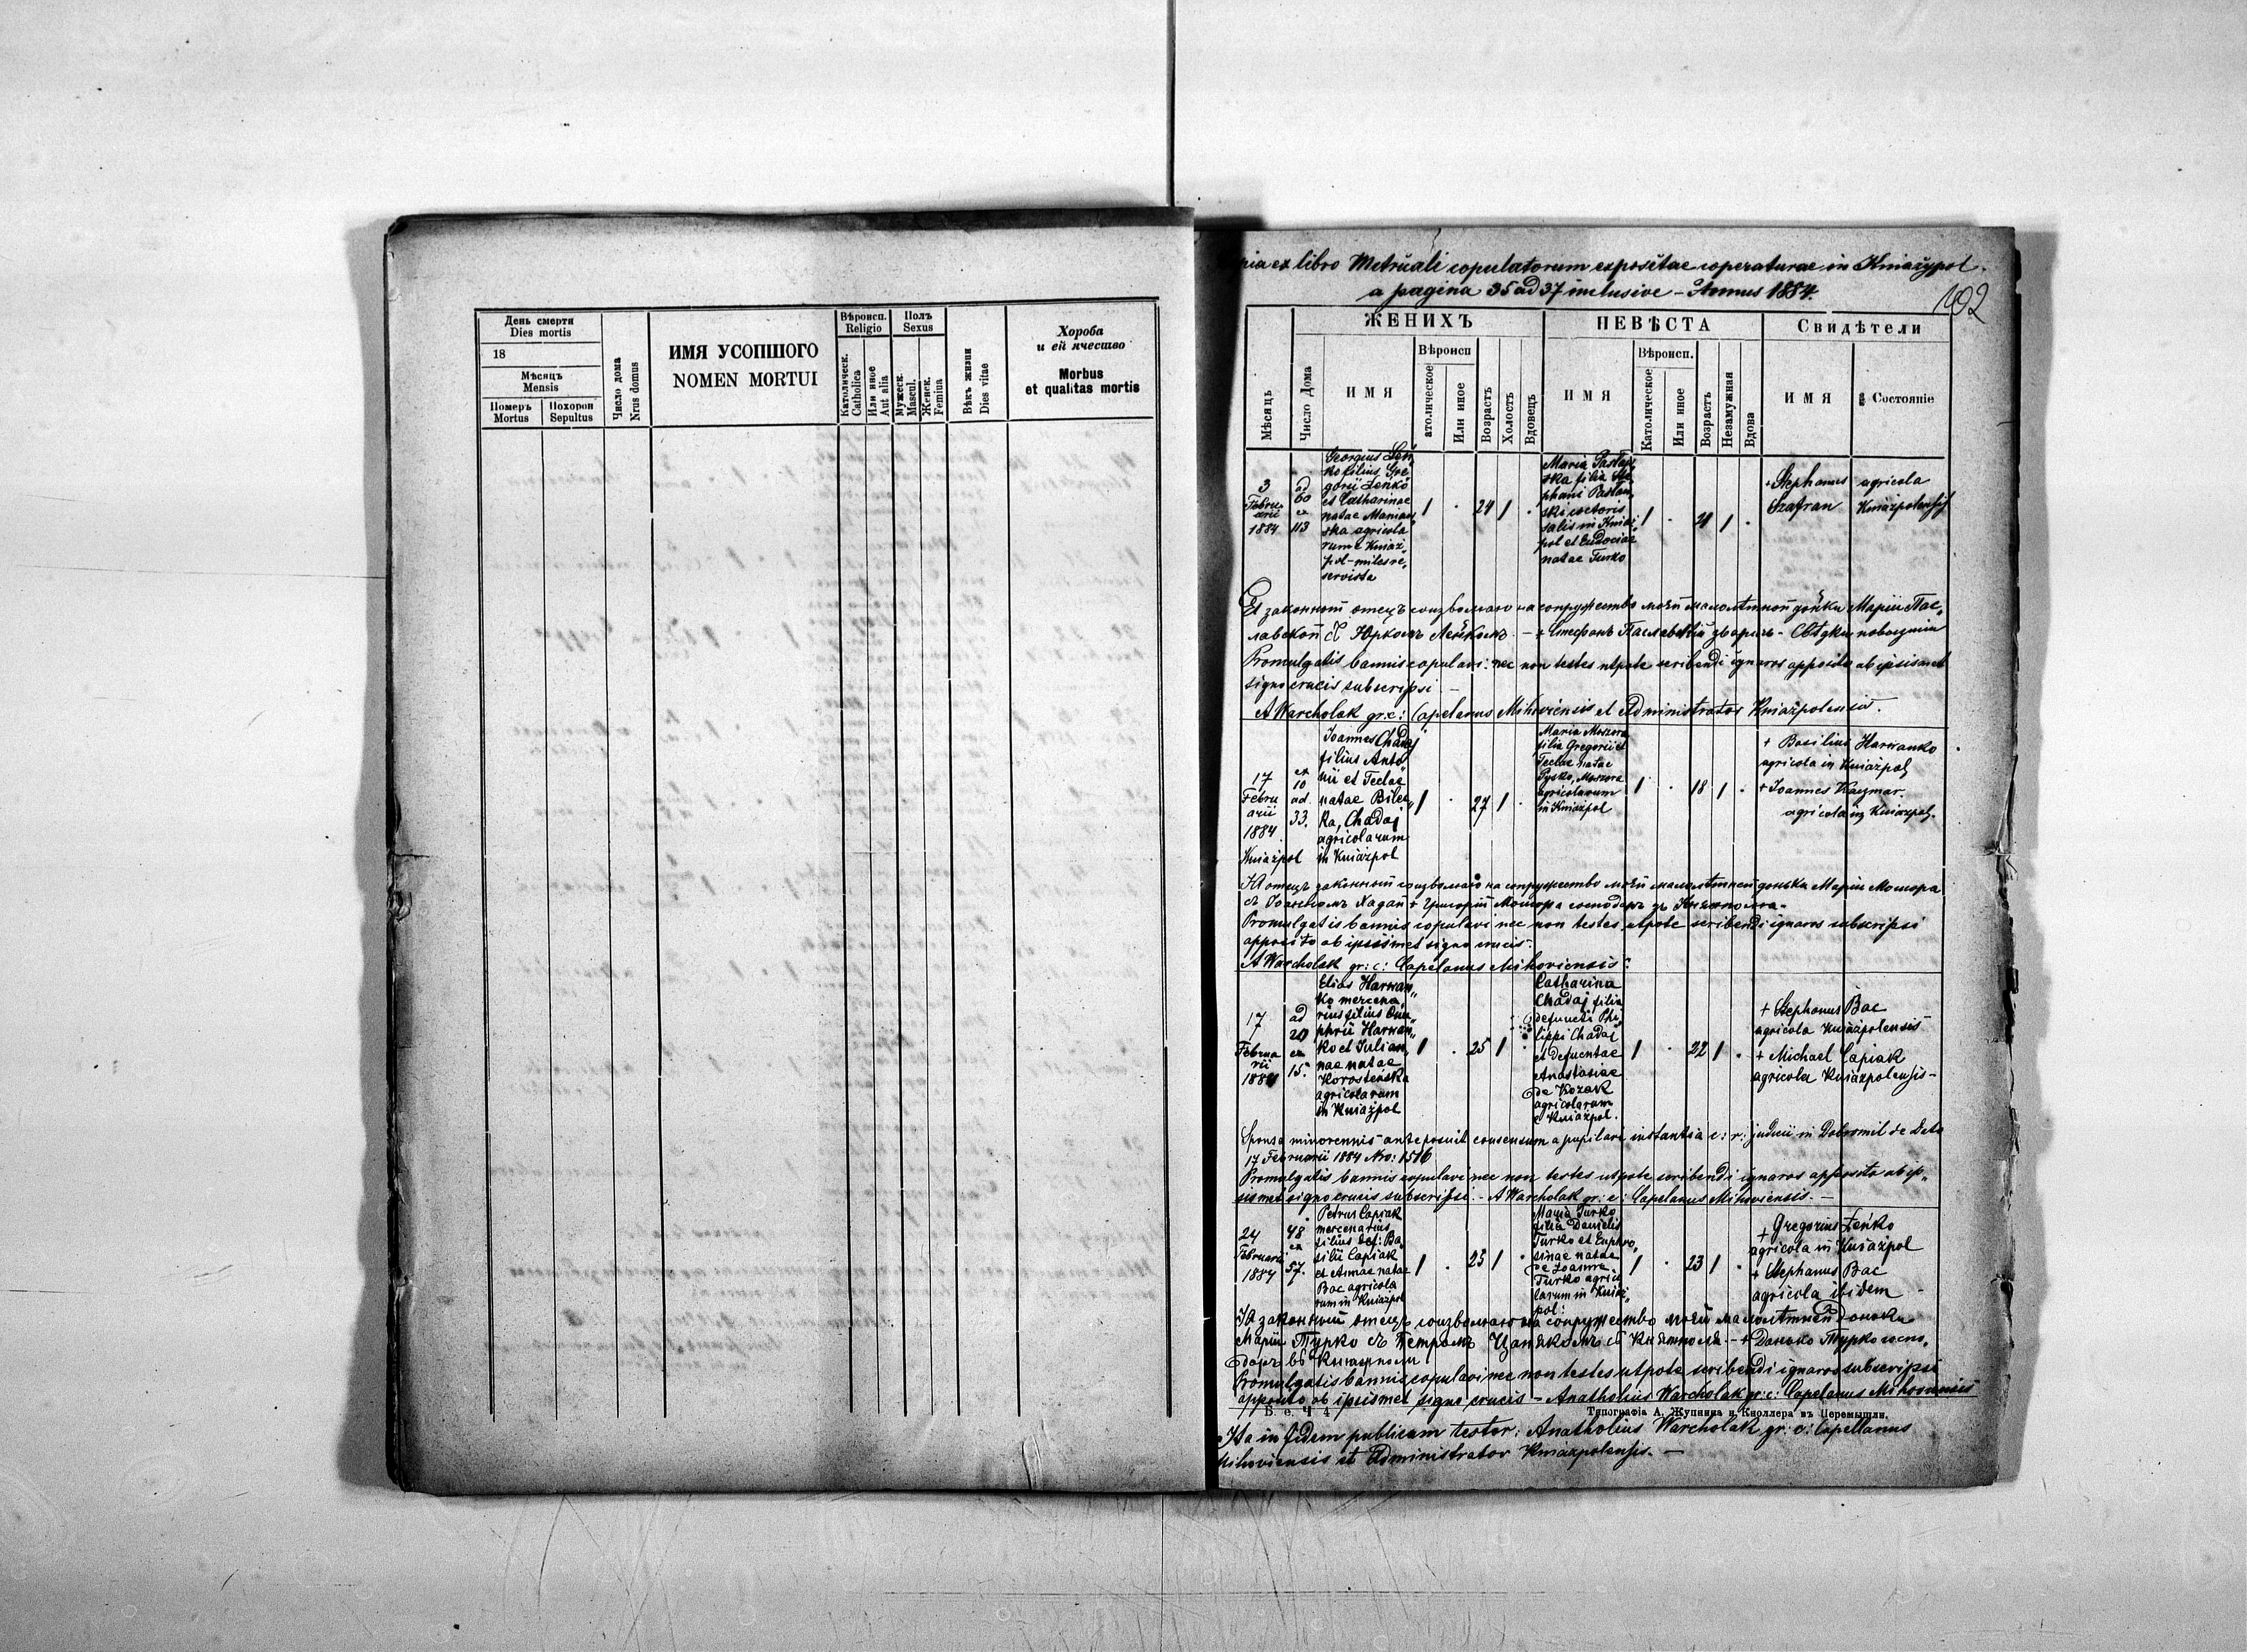 День смерти
Dies mortis
18
Мѣсяцъ
Mensis
Померъ
Mortus
Похорон
Sepultus
Число дома
Nrus domus
ИМЯ УСОПШОГО
NOMEN MORTUI
Вѣроисп.
Religio
Католическ.
Catholica
Или иное
Aut alia
Полъ
Sexus
Мужеск.
Mascul.
Женск.
Femina
Вѣкъ жизни
Dies vitae
Хороба
и ей ячество
Morbus
et qualitas mortis
ex libro Metricali copulatorum expositae cooperaturae in Kniażypol.
a pagina 35 ad 37 inclusive - Annus 1884.
192
ЖЕНИХЪ
НЕВѢСТА
Свидѣтели
Мѣсяць
Число Дома
ИМЯ
Вѣроисп
атолическое
Или иное
Возрастъ
Холостъ
Вдовецъ
ИМЯ
Вѣроисп.
Католическое
Или иное
Возрастъ
Незамужная
Вдова
ИМЯ
Состояніе
3
Febru
arii
1884
ad
60
ex
113
Georgius Leń
ko filius Gre
gorii Leńko
et Catharinae
natae Manian
ska agricola
rum e Kniaż
pol - miles re
servista
1 . 24 1 .
Maria Pasław
ska filia Ste
phani Pasław
ski coctoris
salis in Kniaż
pol et Eudociae
natae Turko
1 . 21 1 .
+ Stephanus agricola
Szafran Kniażpolensis
законный отецъ соизволяю на сопружество моей малолѣтной доньки Маріи Пас„
лавской съ Юркомъ Ленькомъ - + Стефанъ Паславскій зваричъ - Свѣдки
Promulgatis bannis copulavi: nec non testes utpote scribendi ignaros apposito ab ipsismet
signo crucis subscripsi -
A Warcholak gr: c: Capelanus Mihoviensis et Administrator Kniażpolensis.
17
Febru
arii
1884
Kniażpol
ex
10
ad
33.
Joannes Chadaj
filius Anto
nii et Teclae
natae Bilec
ka, Chadaj
agricolarum
in Kniażpol
1 . 27 1 .
Maria Moszora
filia Gregorii et
Teclae natae
Pysko, Moszora
agricolarum
in Kniażpol
1 . 18 1 .
+ Basilius Harwanko
agricola in Kniażpol
+ Joannes Kaczmar.
agricola in Kniażpol.
Я отецъ законный соизволяю на сопружество моей малолѣтней доньки Маріи Мошора
съ Іоанномъ Хадай + Григорій Мошора господарь зъ Княжполя -
Promulgatis bannis copulavi nec non testes utpote scribendi ignaros subscripsi
apposito ab ipsismet signo crucis -
A Warcholak gr: c: Capelanus Mihoviensis.
17
Februa
rii
1884
ad
20
ex
15.
Elias Harwan
ko mercena
rius filius Onu
phrii Harwan
ko et Julian
nae natae
Korosteńska
agricolarum
in Kniażpol
1 . 25 1 .
Catharina
Chadaj filia
defuncti Phi
lippi Chadaj
et defunctae
Anastasiae
de Kozak
agricolarum
e Kniażpol.
1 . 22 1 .
+ Stephanus Bac
agricola Kniażpolensis
+ Michael Capiak
agricola Kniażpolensis -
Sponsa minorennis anteposuit consensum a pupilari instantia c: r: judicii in Dobromil de Dato
17 Februarii 1884 Nro: 1516
Promulgatis bannis copulavi nec non testes utpote scribendi ignaros apposito ab ip„
sismet signo crucis subscripsi. - A Warcholak gr: c: Capelanus Mihoviensis. -
24
Februarii
1884
48
ex
57.
Petrus Capiak
mercenarius
filius def: Ba
silii Capiak
et Annae natae
Bac agricola
rum in Kniażpol
1 . 25 1 .
Maria Turko
filia Danielis
Turko et Euphro
sinae natae
de Loamra
Turko agrico
larum in Kniaż
pol:
1 . 23 1 .
+ Gregorius Leńko
agricola in Kniażpol
+ Stephanus Bac
agricola ibidem -
Я законный отецъ соизволяю на сопружество моей малолѣтней доньки
Маріи Турко съ Петромъ Цапякомъ съ Княжполя - + Данько Турко госпо„
дарь въ Княжполи
Promulgatis bannis copulavi nec non testes utpote scribendi ignaros subscripsi
apposito ab ipsismet signo crucis - Anatholius Warcholak gr: c: Capelanus Mihoviensis
Б. е. Ч 4
Типографія А. Жупанна и Кноллера въ Перемышли.
Ita in fidem publicam testor: Anatholius Warcholak gr: c: Capellanus
Mihoviensis et Administrator Kniażpolensis. -